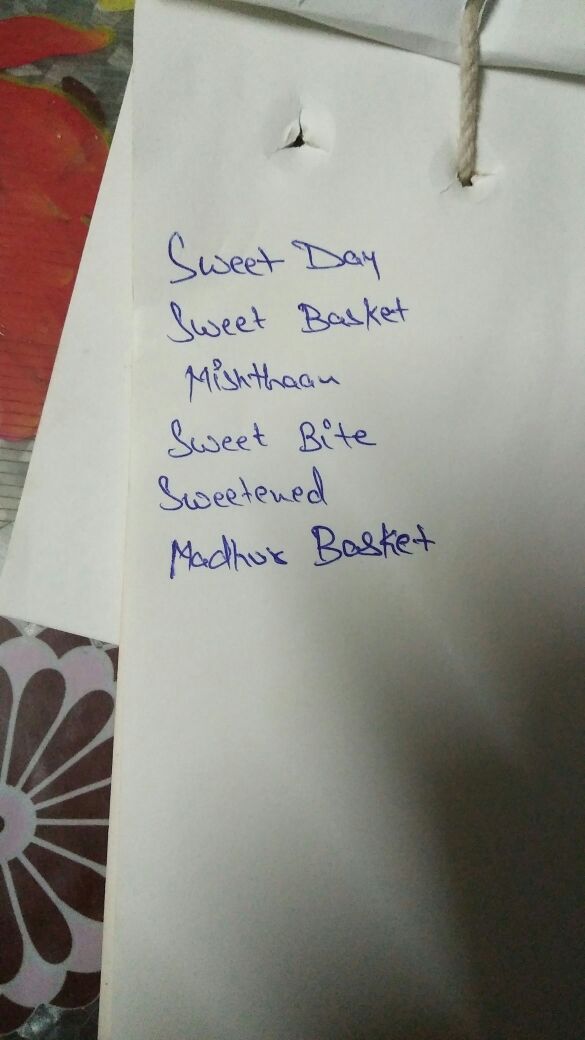 Sweet Day
Sweet Basket
Mishthaan
Sweet Bite
Sweetened
Madhur Basket